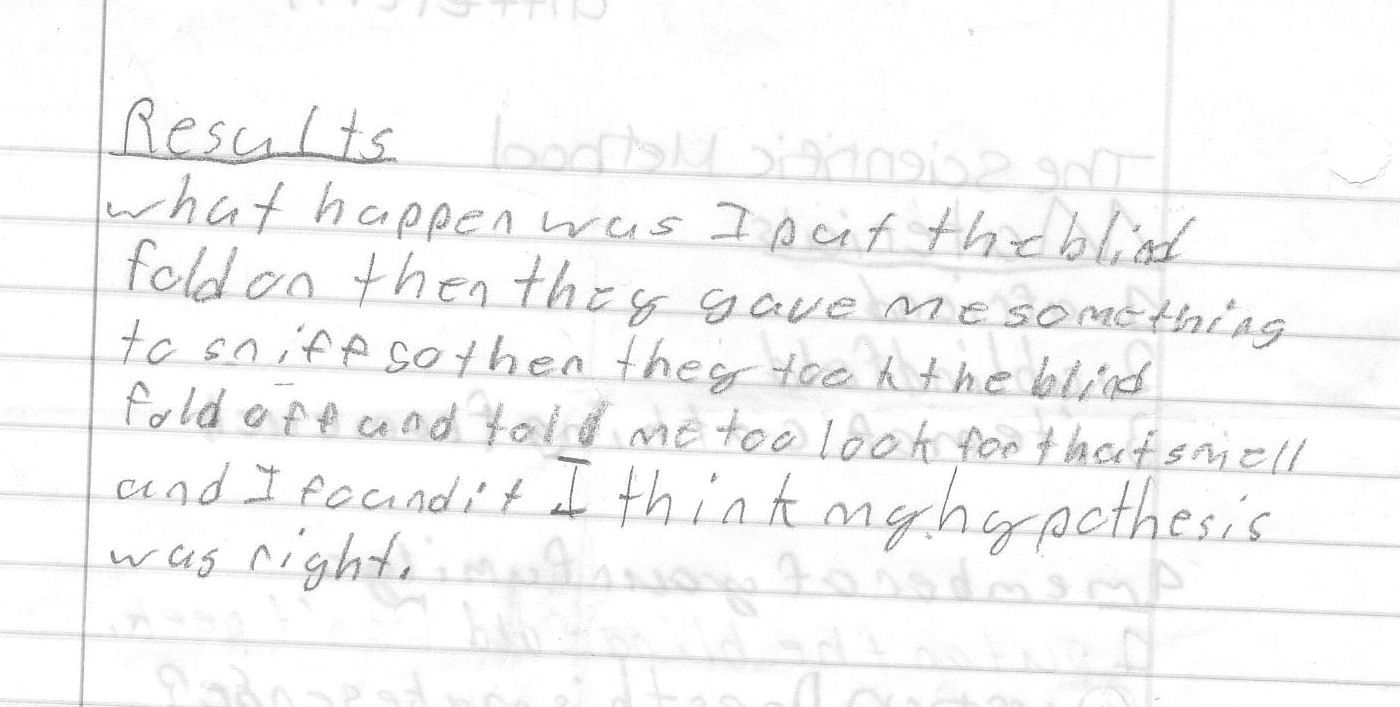 Results
what happen was I put the blind
fold on then they gave me something
to sniff so then they took the blind
fold off and told me too look for that smell
and I found it I think my hypothesis
was right.